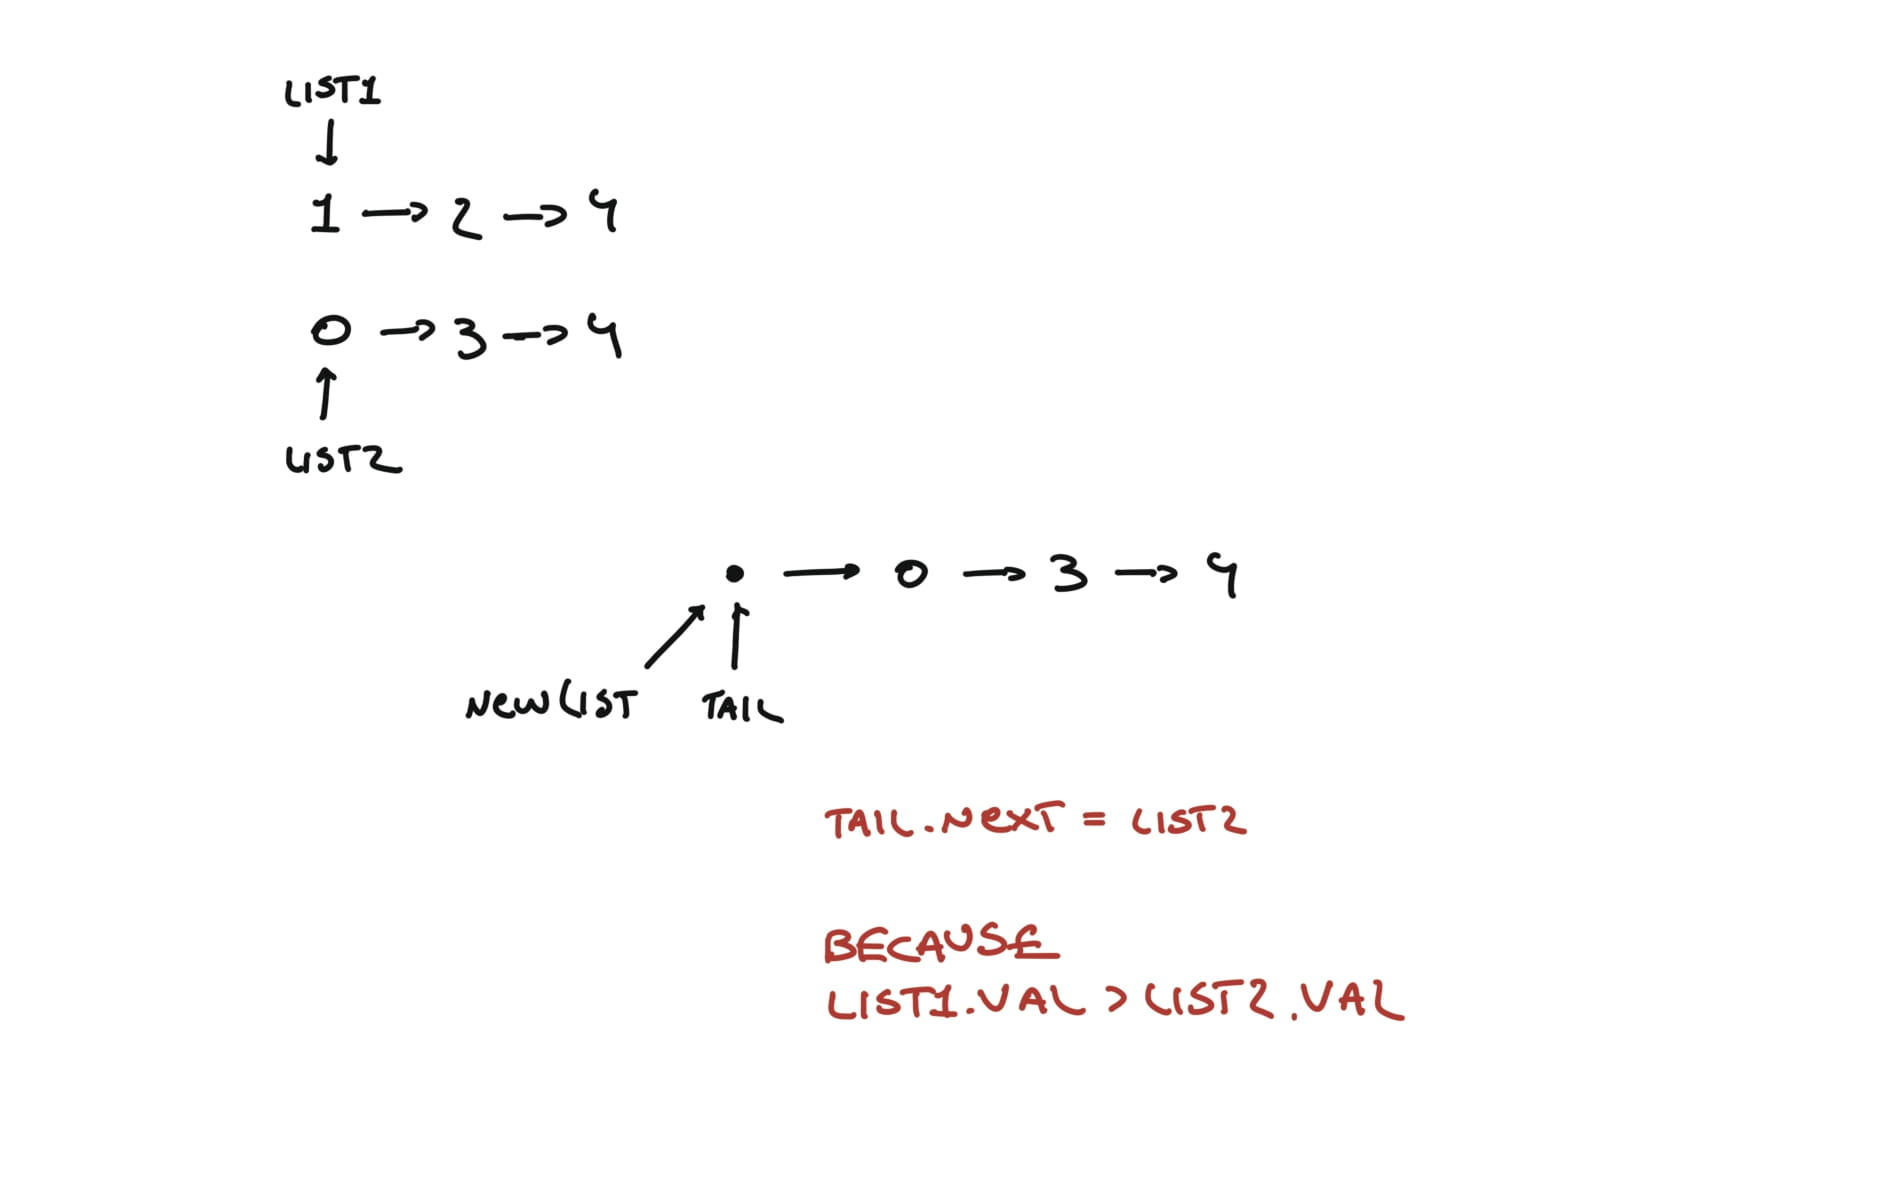 LIST1
↓
1 → 2 → 4
0 → 3 → 4
↑
LIST2
• → 0 → 3 → 4
NEWLIST TAIL
TAIL.NEXT = LIST2
BECAUSE
LIST1.VAL > LIST2.VAL